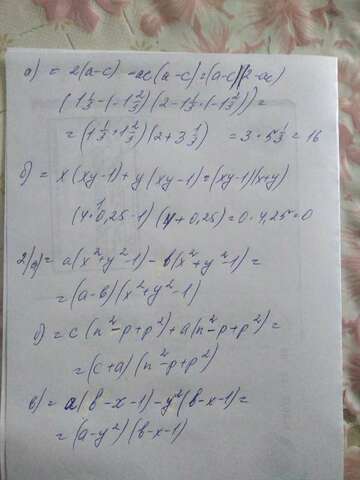 а) = 2(a-c) - ac(a-c) = (a-c)(2-ac)
(1 1/3 - (-1 2/3)) (2 - 1 1/3 · (-1 2/3)) =
= (1 1/3 + 1 2/3) (2 + 3 1/3) = 3 · 5 1/3 = 16
б) = x(xy-1) + y(xy-1) = (xy-1)(x+y)
(4 · 0,25 - 1) (4 + 0,25) = 0 · 4,25 = 0
2) а) = a(x²+y²-1) - b(x²+y²-1) =
= (a-b)(x²+y²-1)
б) = c(n²-p+p²) + a(n²-p+p²) =
= (c+a)(n²-p+p²)
в) = a(b-x-1) - y²(b-x-1) =
= (a-y²)(b-x-1)